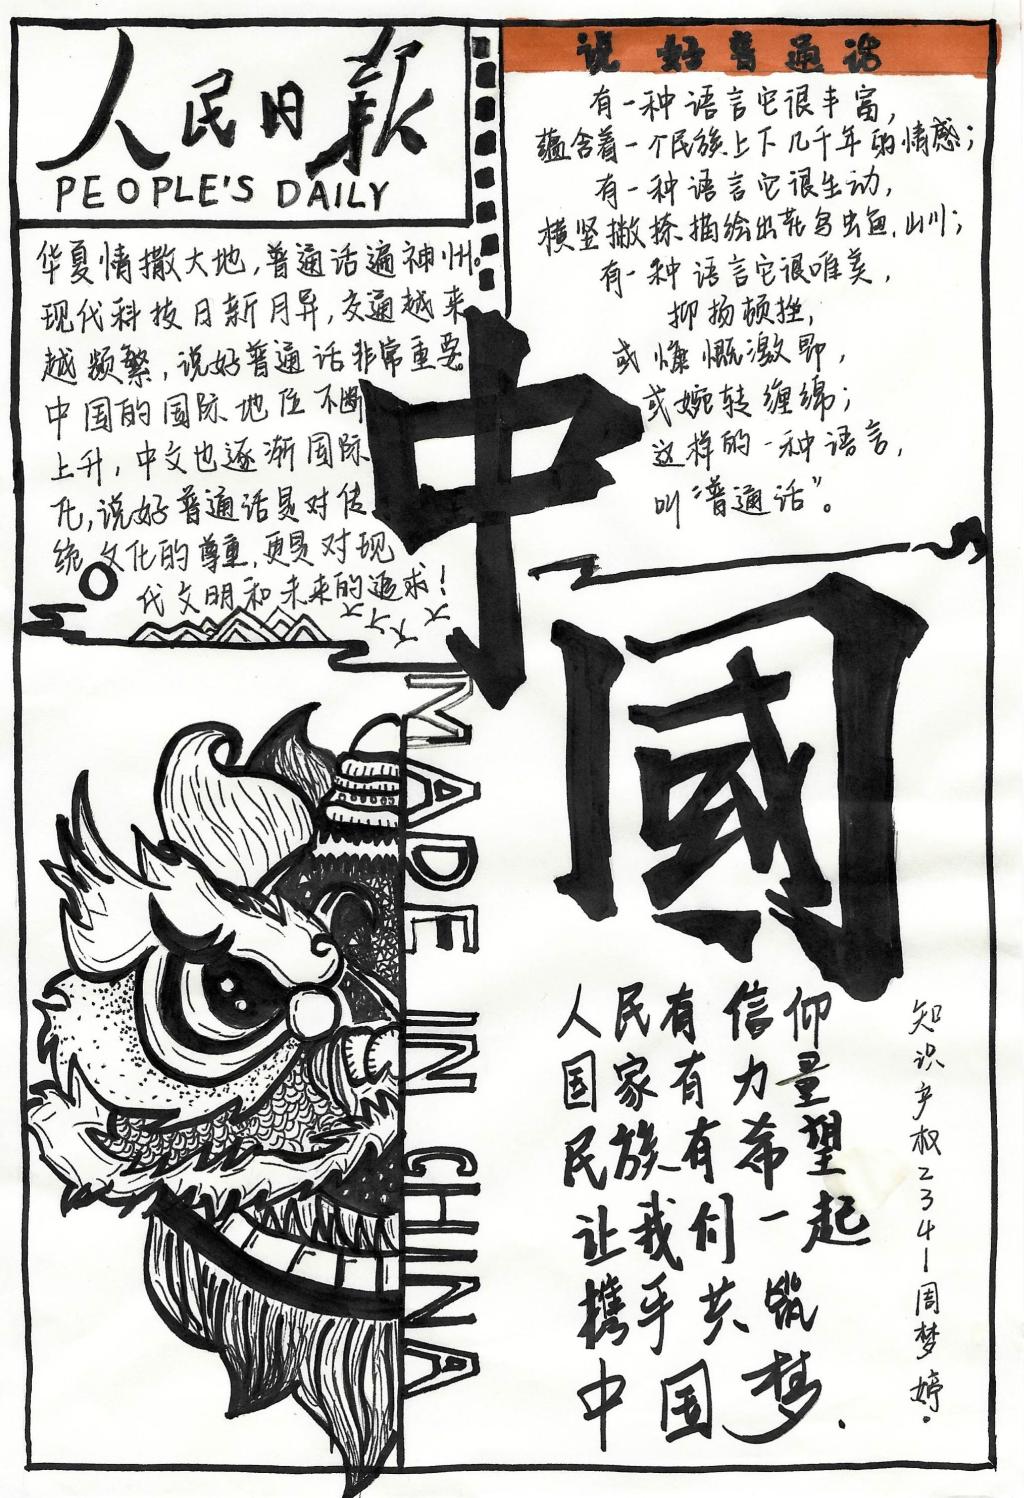 人民日報
PEOPLE'S DAILY
说好普通话
有一种语言它很丰富，
蕴含着一个民族上下几千年的情感；
有一种语言它很生动，
横竖撇捺描绘出花鸟虫鱼，山川；
有一种语言它很唯美，
抑扬顿挫，
或慷慨激昂，
或婉转缠绵；
这样的一种语言，
叫“普通话”。
华夏情撒大地，普通话遍神州。
现代科技日新月异，交通越来
越频繁，说好普通话非常重要。
中国的国际地位不断
上升，中文也逐渐国际
化，说好普通话是对传
统文化的尊重，更是对现
代文明和未来的追求！
中國
MADE IN CHINA
人民有信仰
国家有力量
民族有希望
让我们一起
携手共筑
中国梦.
知识产权2341周梦婷.